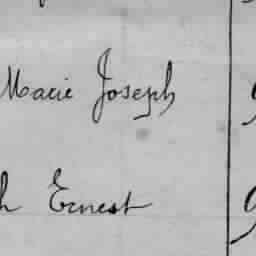 Marie Joseph
h Ernest